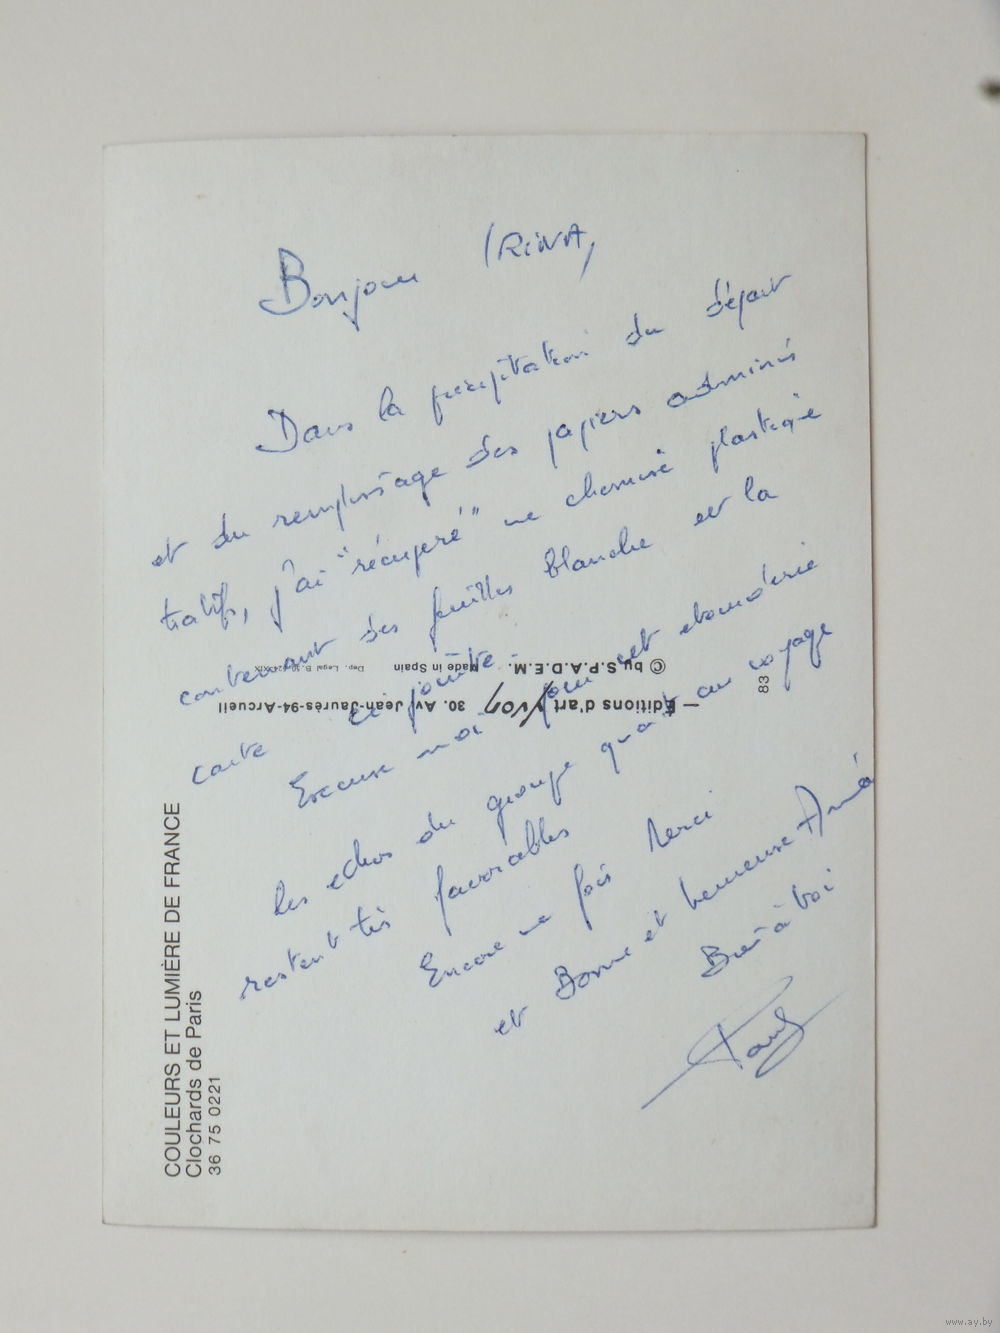 Bonjour IRINA,
Dans la précipitation du départ
et du remplissage des papiers adminis
tratifs, j'ai "récupéré" une chemise plastique
contenant des feuilles blanche et la
carte ci jointe.
Excuse moi pour cet étourderie
les echos du groupe quant au voyage
restent très favorables
Encore une fois Merci
et Bonne et heureuse Année
Bien à toi
Paul
© by S.P.A.D.E.M. Made in Spain Dep. Legal B.
Éditions d'art Yvon 30. Av. Jean-Jaurès-94-Arcueil
83
COULEURS ET LUMIÈRE DE FRANCE
Clochards de Paris
36 75 0221
www.ay.by